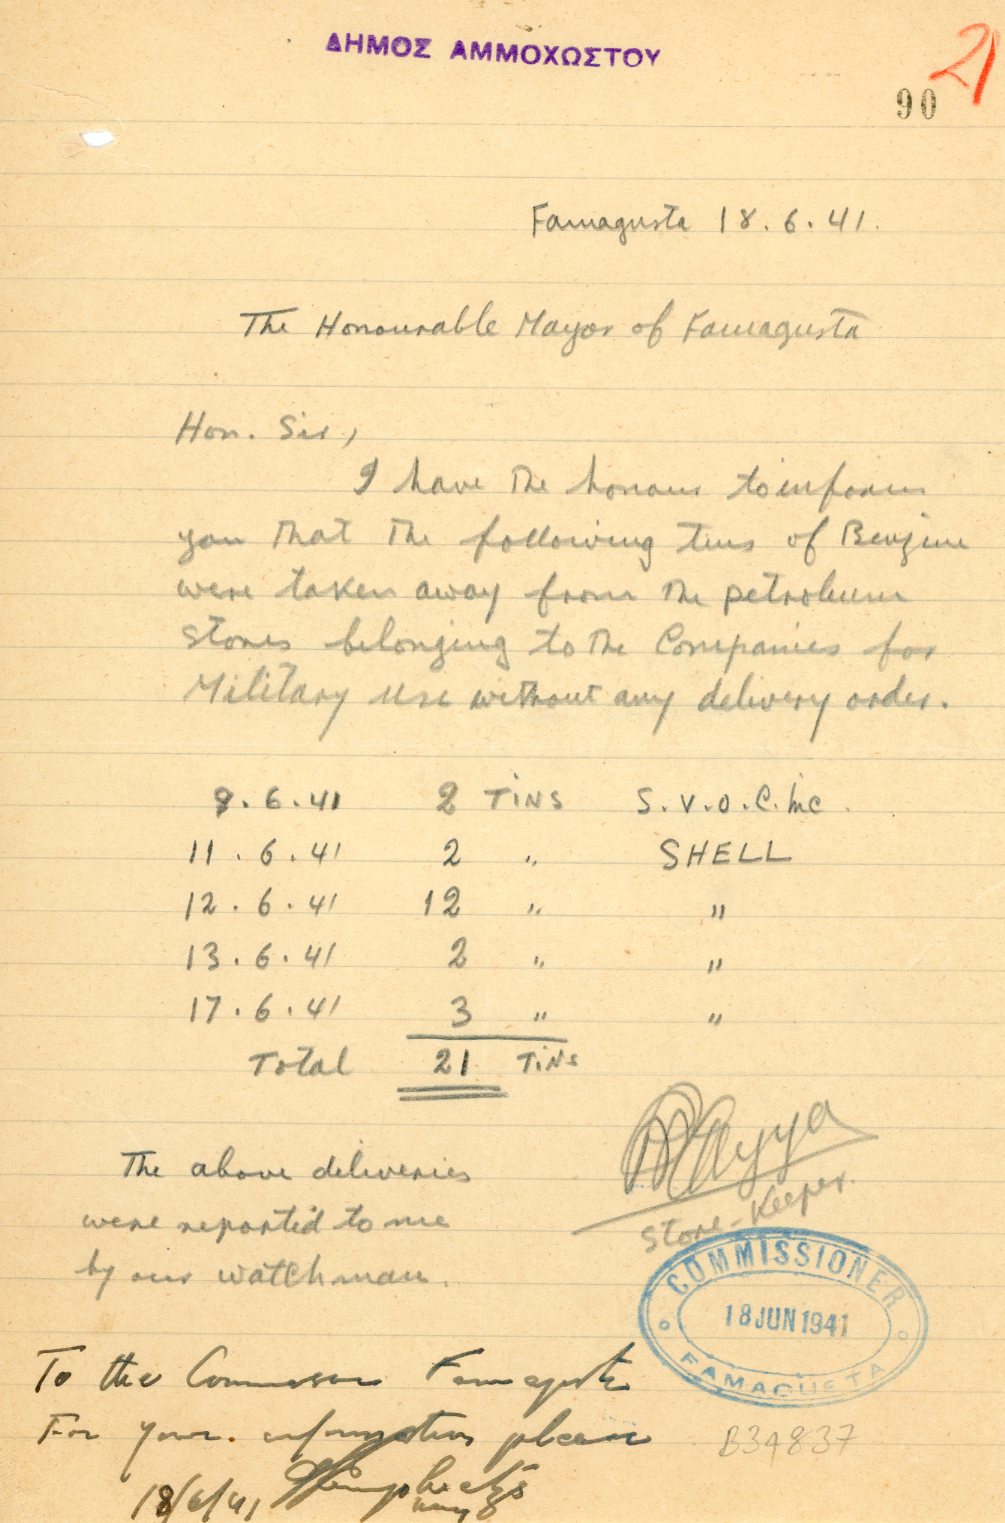 ΔΗΜΟΣ ΑΜΜΟΧΩΣΤΟΥ
21
90
Famagusta 18.6.41.
The Honourable Mayor of Famagusta
Hon. Sir,
I have the honour to inform
you that the following tins of Benzine
were taken away from the petroleum
stores belonging to the Companies for
Military use without any delivery order.
9.6.41 2 TINS S.V.O.C. Inc.
11.6.41 2 " SHELL
12.6.41 12 " "
13.6.41 2 " "
17.6.41 3 " "
Total 21 TINS
The above deliveries
were reported to me
by our watchman.
Store-Keeper.
COMMISSIONER
18 JUN 1941
FAMAGUSTA
To the Commissioner Famagusta
For your information please
18/6/41
B34837